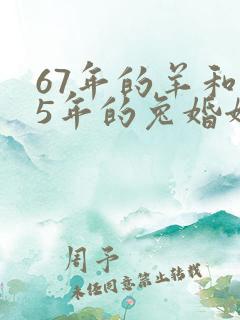 67年的羊和
5年的兔婚
周予
未经同意禁止转载